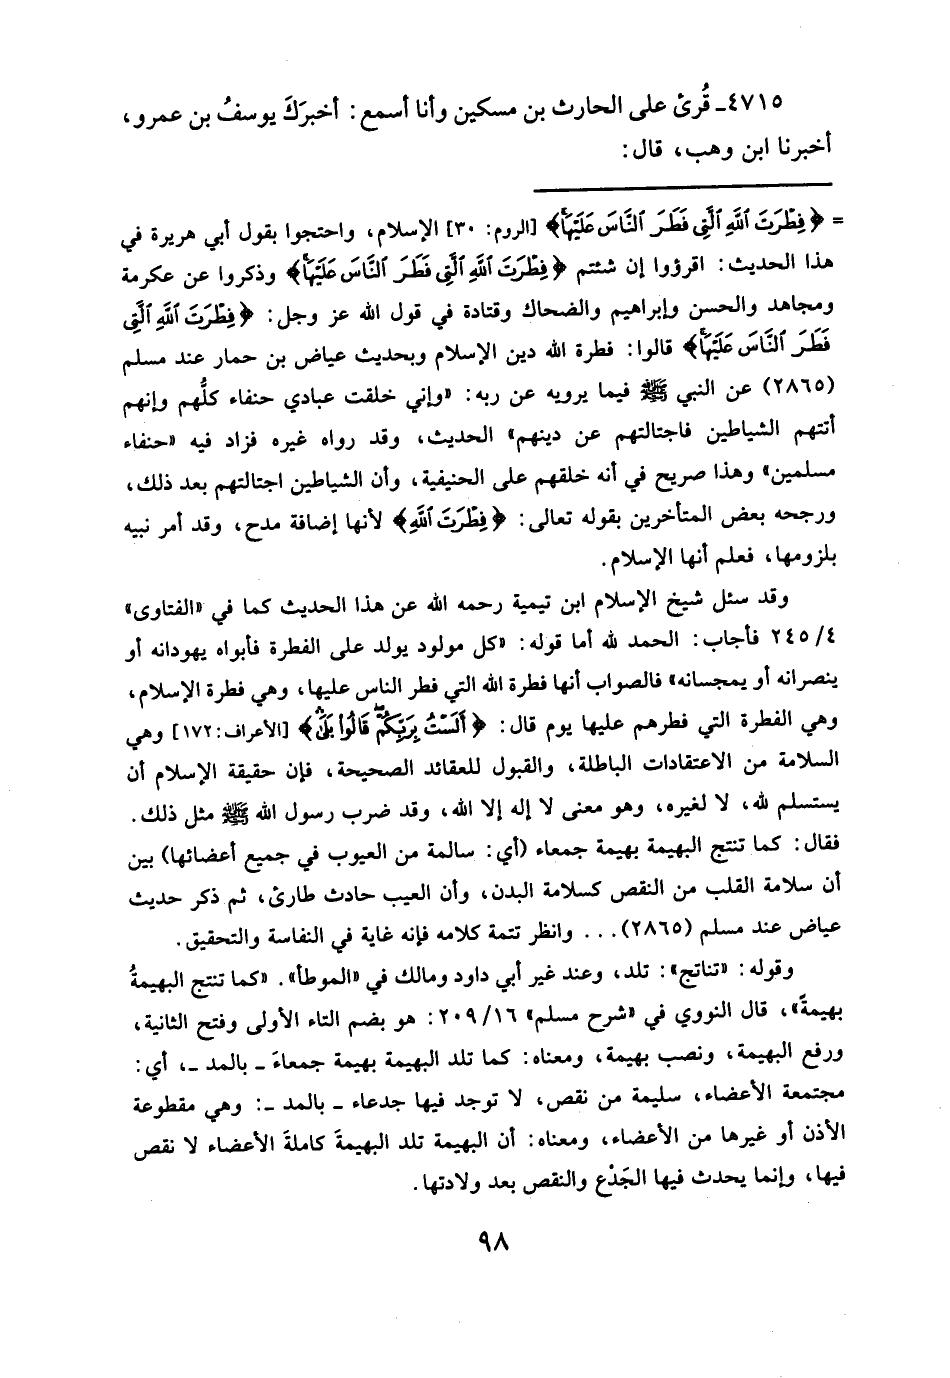 ٤٧١٥ـ قُرئ على الحارث بن مسكين وأنا أسمع: أخبرَكَ يوسفُ بن عمرو،
أخبرنا ابن وهب، قال:
= ﴿فِطْرَتَ ٱللَّهِ ٱلَّتِى فَطَرَ ٱلنَّاسَ عَلَيْهَا﴾ [الروم: ٣٠] الإسلام، واحتجوا بقول أبي هريرة في
هذا الحديث: اقرؤوا إن شئتم ﴿فِطْرَتَ ٱللَّهِ ٱلَّتِى فَطَرَ ٱلنَّاسَ عَلَيْهَا﴾ وذكروا عن عكرمة
ومجاهد والحسن وإبراهيم والضحاك وقتادة في قول الله عز وجل: ﴿فِطْرَتَ ٱللَّهِ ٱلَّتِى
فَطَرَ ٱلنَّاسَ عَلَيْهَا﴾ قالوا: فطرة الله دين الإسلام وبحديث عياض بن حمار عند مسلم
(٢٨٦٥) عن النبي ﷺ فيما يرويه عن ربه: «وإني خلقت عبادي حنفاء كلُّهم وإنهم
أتتهم الشياطين فاجتالتهم عن دينهم» الحديث، وقد رواه غيره فزاد فيه «حنفاء
مسلمين» وهذا صريح في أنه خلقهم على الحنيفية، وأن الشياطين اجتالتهم بعد ذلك،
ورجحه بعض المتأخرين بقوله تعالى: ﴿فِطْرَتَ ٱللَّهِ﴾ لأنها إضافة مدح، وقد أمر نبيه
بلزومها، فعلم أنها الإسلام.
وقد سئل شيخ الإسلام ابن تيمية رحمه الله عن هذا الحديث كما في «الفتاوى»
٤/ ٢٤٥ فأجاب: الحمد لله أما قوله: «كل مولود يولد على الفطرة فأبواه يهودانه أو
ينصرانه أو يمجسانه» فالصواب أنها فطرة الله التي فطر الناس عليها، وهي فطرة الإسلام،
وهي الفطرة التي فطرهم عليها يوم قال: ﴿أَلَسْتُ بِرَبِّكُمْ قَالُوا۟ بَلَىٰ﴾ [الأعراف: ١٧٢] وهي
السلامة من الاعتقادات الباطلة، والقبول للعقائد الصحيحة، فإن حقيقة الإسلام أن
يستسلم لله، لا لغيره، وهو معنى لا إله إلا الله، وقد ضرب رسول الله ﷺ مثل ذلك.
فقال: كما تنتج البهيمة بهيمة جمعاء (أي: سالمة من العيوب في جميع أعضائها) بين
أن سلامة القلب من النقص كسلامة البدن، وأن العيب حادث طارئ، ثم ذكر حديث
عياض عند مسلم (٢٨٦٥)... وانظر تتمة كلامه فإنه غاية في النفاسة والتحقيق.
وقوله: «تناتج»: تلد، وعند غير أبي داود ومالك في «الموطأ». «كما تنتج البهيمةُ
بهيمةً»، قال النووي في «شرح مسلم» ١٦/ ٢٠٩: هو بضم التاء الأولى وفتح الثانية،
ورفع البهيمة، ونصب بهيمة، ومعناه: كما تلد البهيمة بهيمة جمعاءَ ـ بالمد ـ، أي:
مجتمعة الأعضاء، سليمة من نقص، لا توجد فيها جدعاء ـ بالمد ـ: وهي مقطوعة
الأذن أو غيرها من الأعضاء، ومعناه: أن البهيمة تلد البهيمةَ كاملةَ الأعضاء لا نقص
فيها، وإنما يحدث فيها الجَدْع والنقص بعد ولادتها.
٩٨